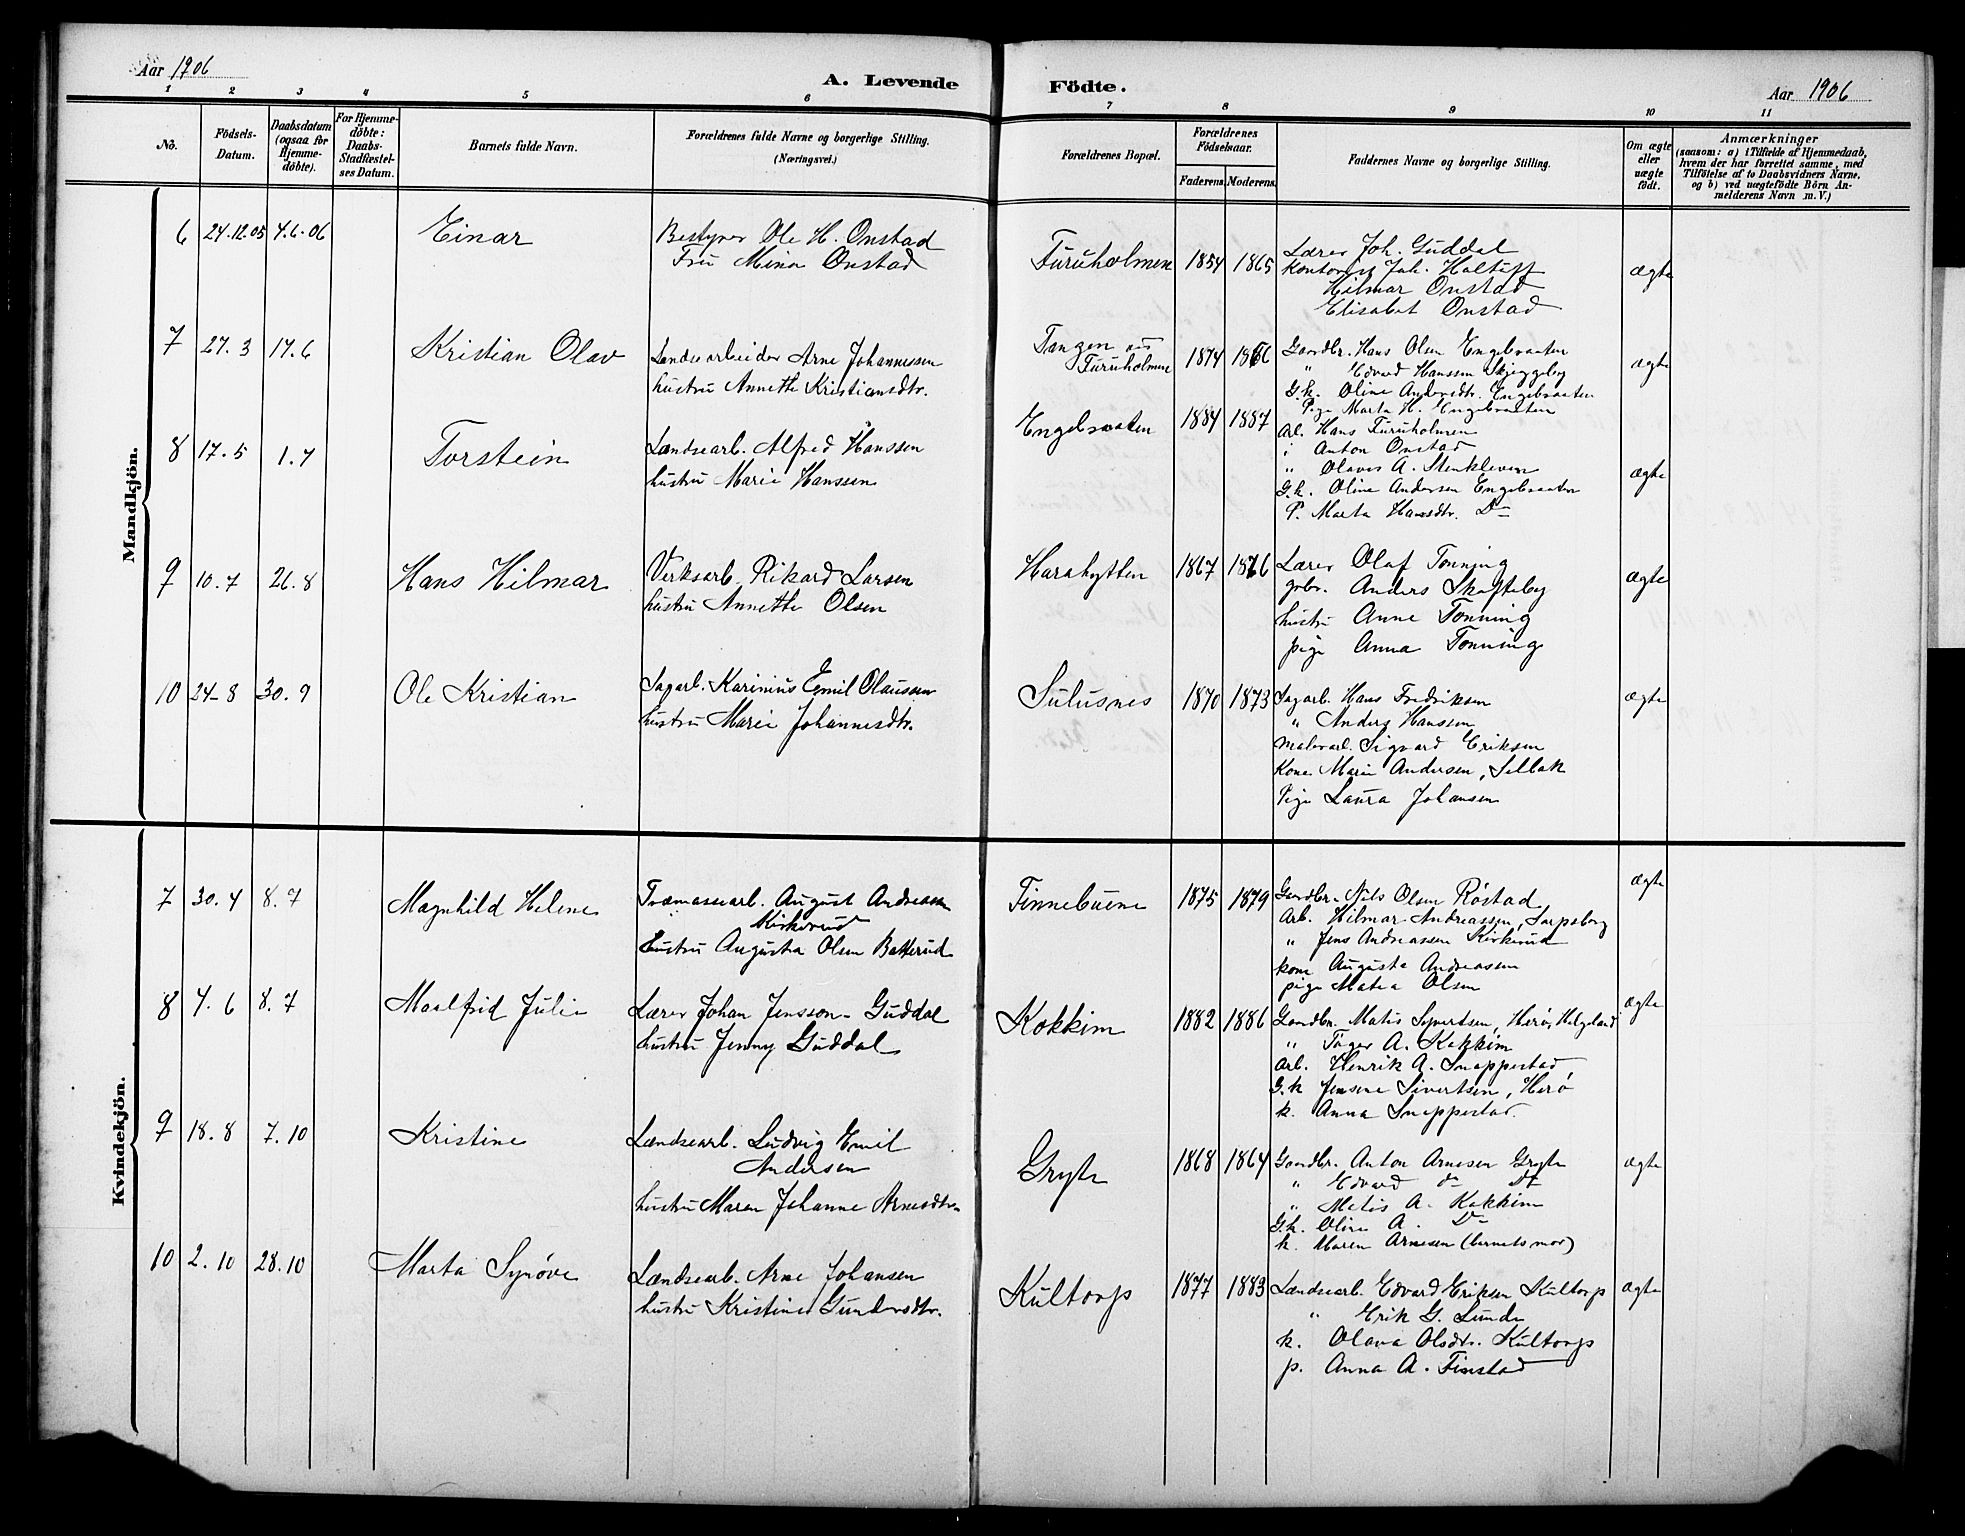 Aar 1906
A. Levende Födte.
Aar 1906
1 2 3 4 5 6 7 8 9 10 11
No.
Födsels-Datum.
Daabsdatum (ogsaa for Hjemme-döbte).
For Hjemme-döbte: Daabs-Stadfæstel-ses Datum.
Barnets fulde Navn.
Forældrenes fulde Navne og borgerlige Stilling.
(Næringsvei.)
Forældrenes Bopæl.
Forældrenes Födselsaar.
Faderens. Moderens.
Faddernes Navne og borgerlige Stilling.
Om ægte eller uægte födt.
Anmærkninger
(saasom: a) i Tilfælde af Hjemmedaab,
hvem der har forrettet samme, med
Tilföielse af to Daabsvidners Navne,
og b) ved uægtefödte Börn An-
melderens Navn m. V.)
Mandkjön.
6 24.12.05 4.6-06 Einar
Bestyrer Ole H. Onstad
Fru Mina Onstad
Furuholmen 1854 1865
Lærer Joh. Guddal
Joh. Holtuft
Hilmar Onstad
Elisabet Onstad
ægte
7 27.3 17.6 Kristian Olav
Lændsearbeider Arne Johannessen
hustru Annette Kristiansdtr.
Tangen
Furuholmen 1874
Gaardbr. Hans Olsen Engebraaten
" Edvard Hanssen Skjeggeby
G.k. Oline Andersdtr. Engebraaten
Pige Marta H. Engebraaten
ægte
8 17.5 1.7 Torstein
Lændsearb. Alfred Hanssen
hustru Marie Hanssen
Engebraaten 1884 1887
Arb. Hans Furuholmen
" Anton Onstad
" Olaves A. Stenkleven
G.k. Oline Andersen Engebraaten
P. Marta Hansdtr. Do
ægte
9 10.7 26.8 Hans Hilmar
Verksarb. Rikard Larsen
hustru Annette Olsen
Harahytten 1867 1876
Lærer Olaf Tonning
grbr. Anders Skofteby
hustru Anne Tonning
pige Anna Tonning
ægte
10 24-8 30.9 Ole Kristian
Sagarb. Karinius Emil Olaussen
hustru Marie Johannesdtr.
Sulusnes 1870 1873
Sagarb. Hans Fredriksen
" Anders Hanssen
Malerarb. Sigvard Eriksen
Kone Marie Andersen, Sellak
Pige Laura Johansen
ægte
Kvindekjön.
7 30.4 8.7 Magnhild Helene
Træmassearb. August Andreassen
Kirkerud
hustru Augusta Olsen Batterud
Finnebuene 1875 1879
Gardbr. Nils Olsen Røstad
Arb. Hilmar Andreassen, Sarpsborg
" Jens Andreassen Kirkerud
kone Augusta Andreassen
pige Matea Olsen
ægte
8 4.6 8.7 Maalfrid Julie
Lærer Johan Jensson-Guddal
hustru Jenny Guddal
Kokkim 1882 1886
Gardbr. Matis Syvertsen, Herø, Helgeland
" Tøger A. Kokkim
Arb. Henrik A. Snappestad
G.k Jensine Sivertsen, Herø
k. Anna Snappestad.
ægte
9 18.8 7.10 Kristine
Lændsearb. Ludvig Emil
Andersen
hustru Maren Johanne Arnesdtr.
Gryte 1868 1864
Gardbr. Anton Arnesen Gryte
" Edvard do Do
" Matis A. Kokkim
G.k. Oline A. Do
k. Maren Arnesen (barnets mor)
ægte
10 2.10 28.10 Marta Synøve
Lændsearb. Arne Johansen
hustru Kristine Gundersdtr.
Kultorp 1877 1883
Lændsearb. Edvard Eriksen Kultorp
" Erik G. Lunde
k. Olava Olsdtr. Kultorp
p. Anna A. Finstad
ægte